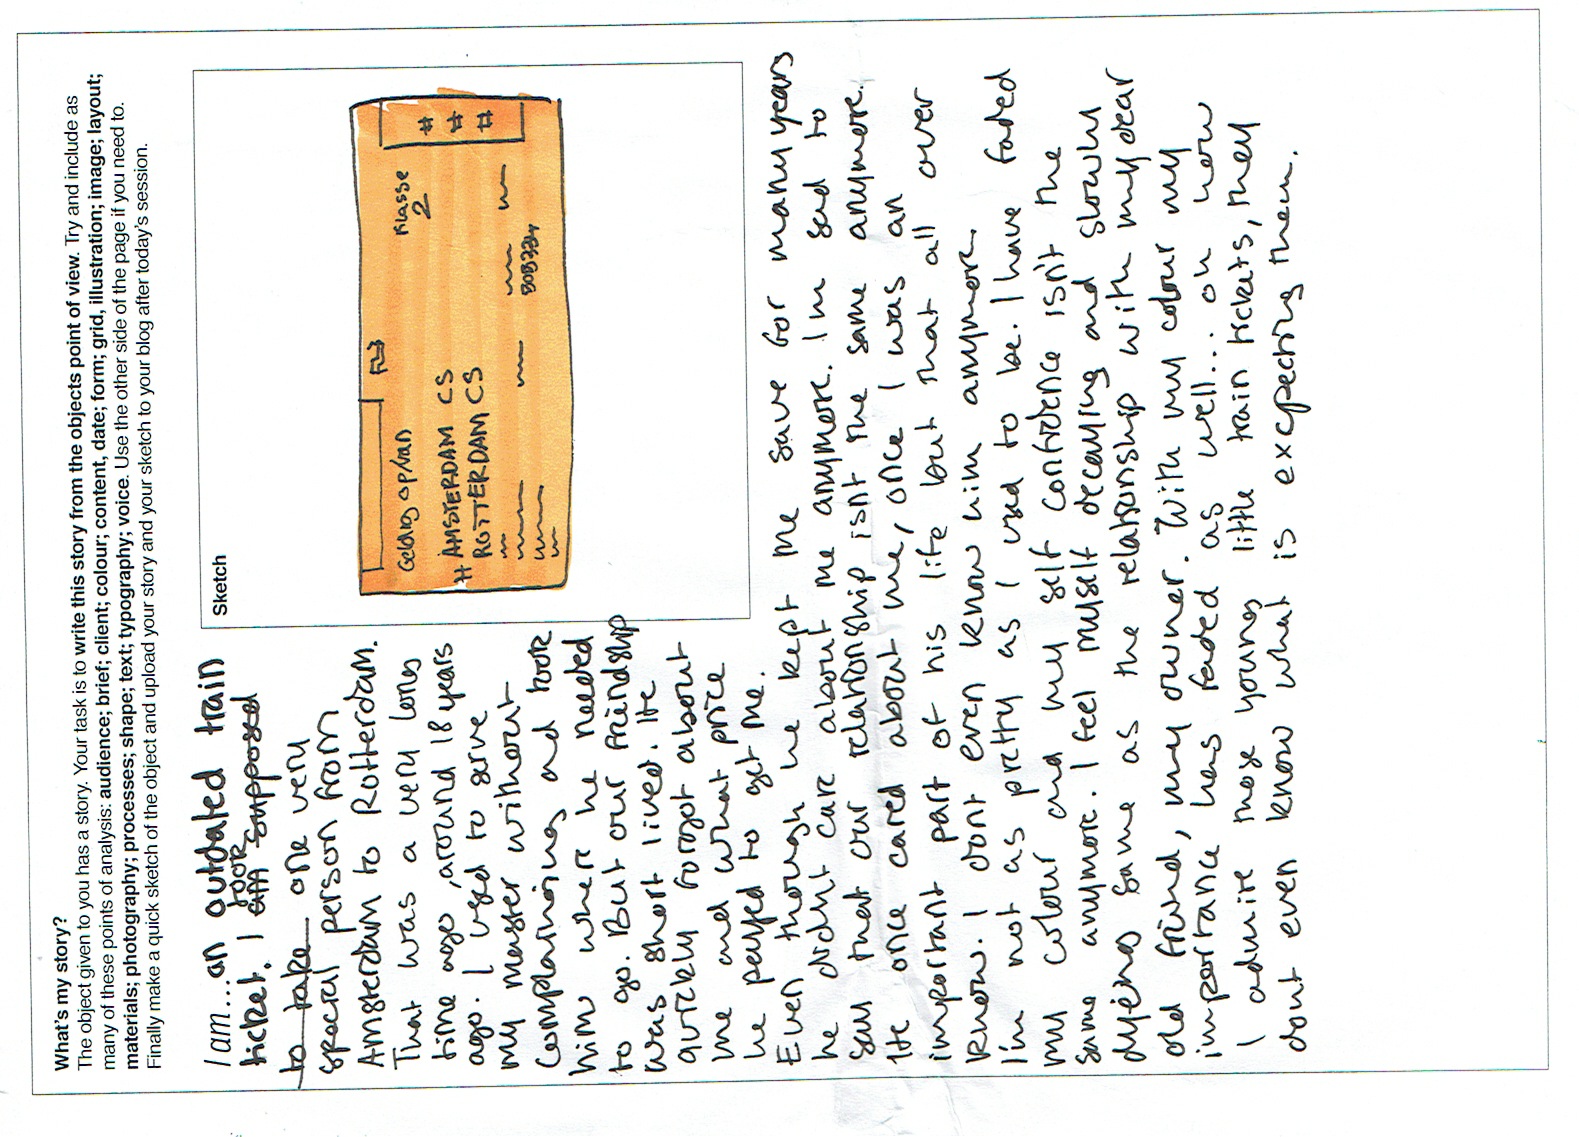 What's my story?
The object given to you has a story. Your task is to write this story from the objects point of view. Try and include as
many of these points of analysis: audience; brief; client; colour; content, date; form; grid, illustration; image; layout;
materials; photography; processes; shape; text; typography; voice. Use the other side of the page if you need to.
Finally make a quick sketch of the object and upload your story and your sketch to your blog after today's session.
I am... an outdated train
ticket. I am supposed took
to take one very
special person from
Amsterdam to Rotterdam.
That was a very long
time ago, around 18 years
ago. I used to serve
my master without
complaining and took
him where he needed
to go. But our friendship
was short lived. He
quickly forgot about
me and what price
he payed to get me.
Even though he kept me save for many years
he didnt care about me anymore. Im sad to
say that our relationship isnt the same anymore.
He once cared about me, once I was an
important part of his life but that all over
know. I dont even know him anymore.
I'm not as pretty as I used to be. I have faded
my colour and my self confidence isn't the
same anymore. I feel myself decaying and slowly
dying same as the relationship with my dear
old friend, my owner. With my colour my
importance has faded as well... oh how
I admire those young little train tickets, they
dont even know what is expecting them.
Sketch
Geldig op/van
Klasse
2
# AMSTERDAM CS
ROTTERDAM CS
#
#
#